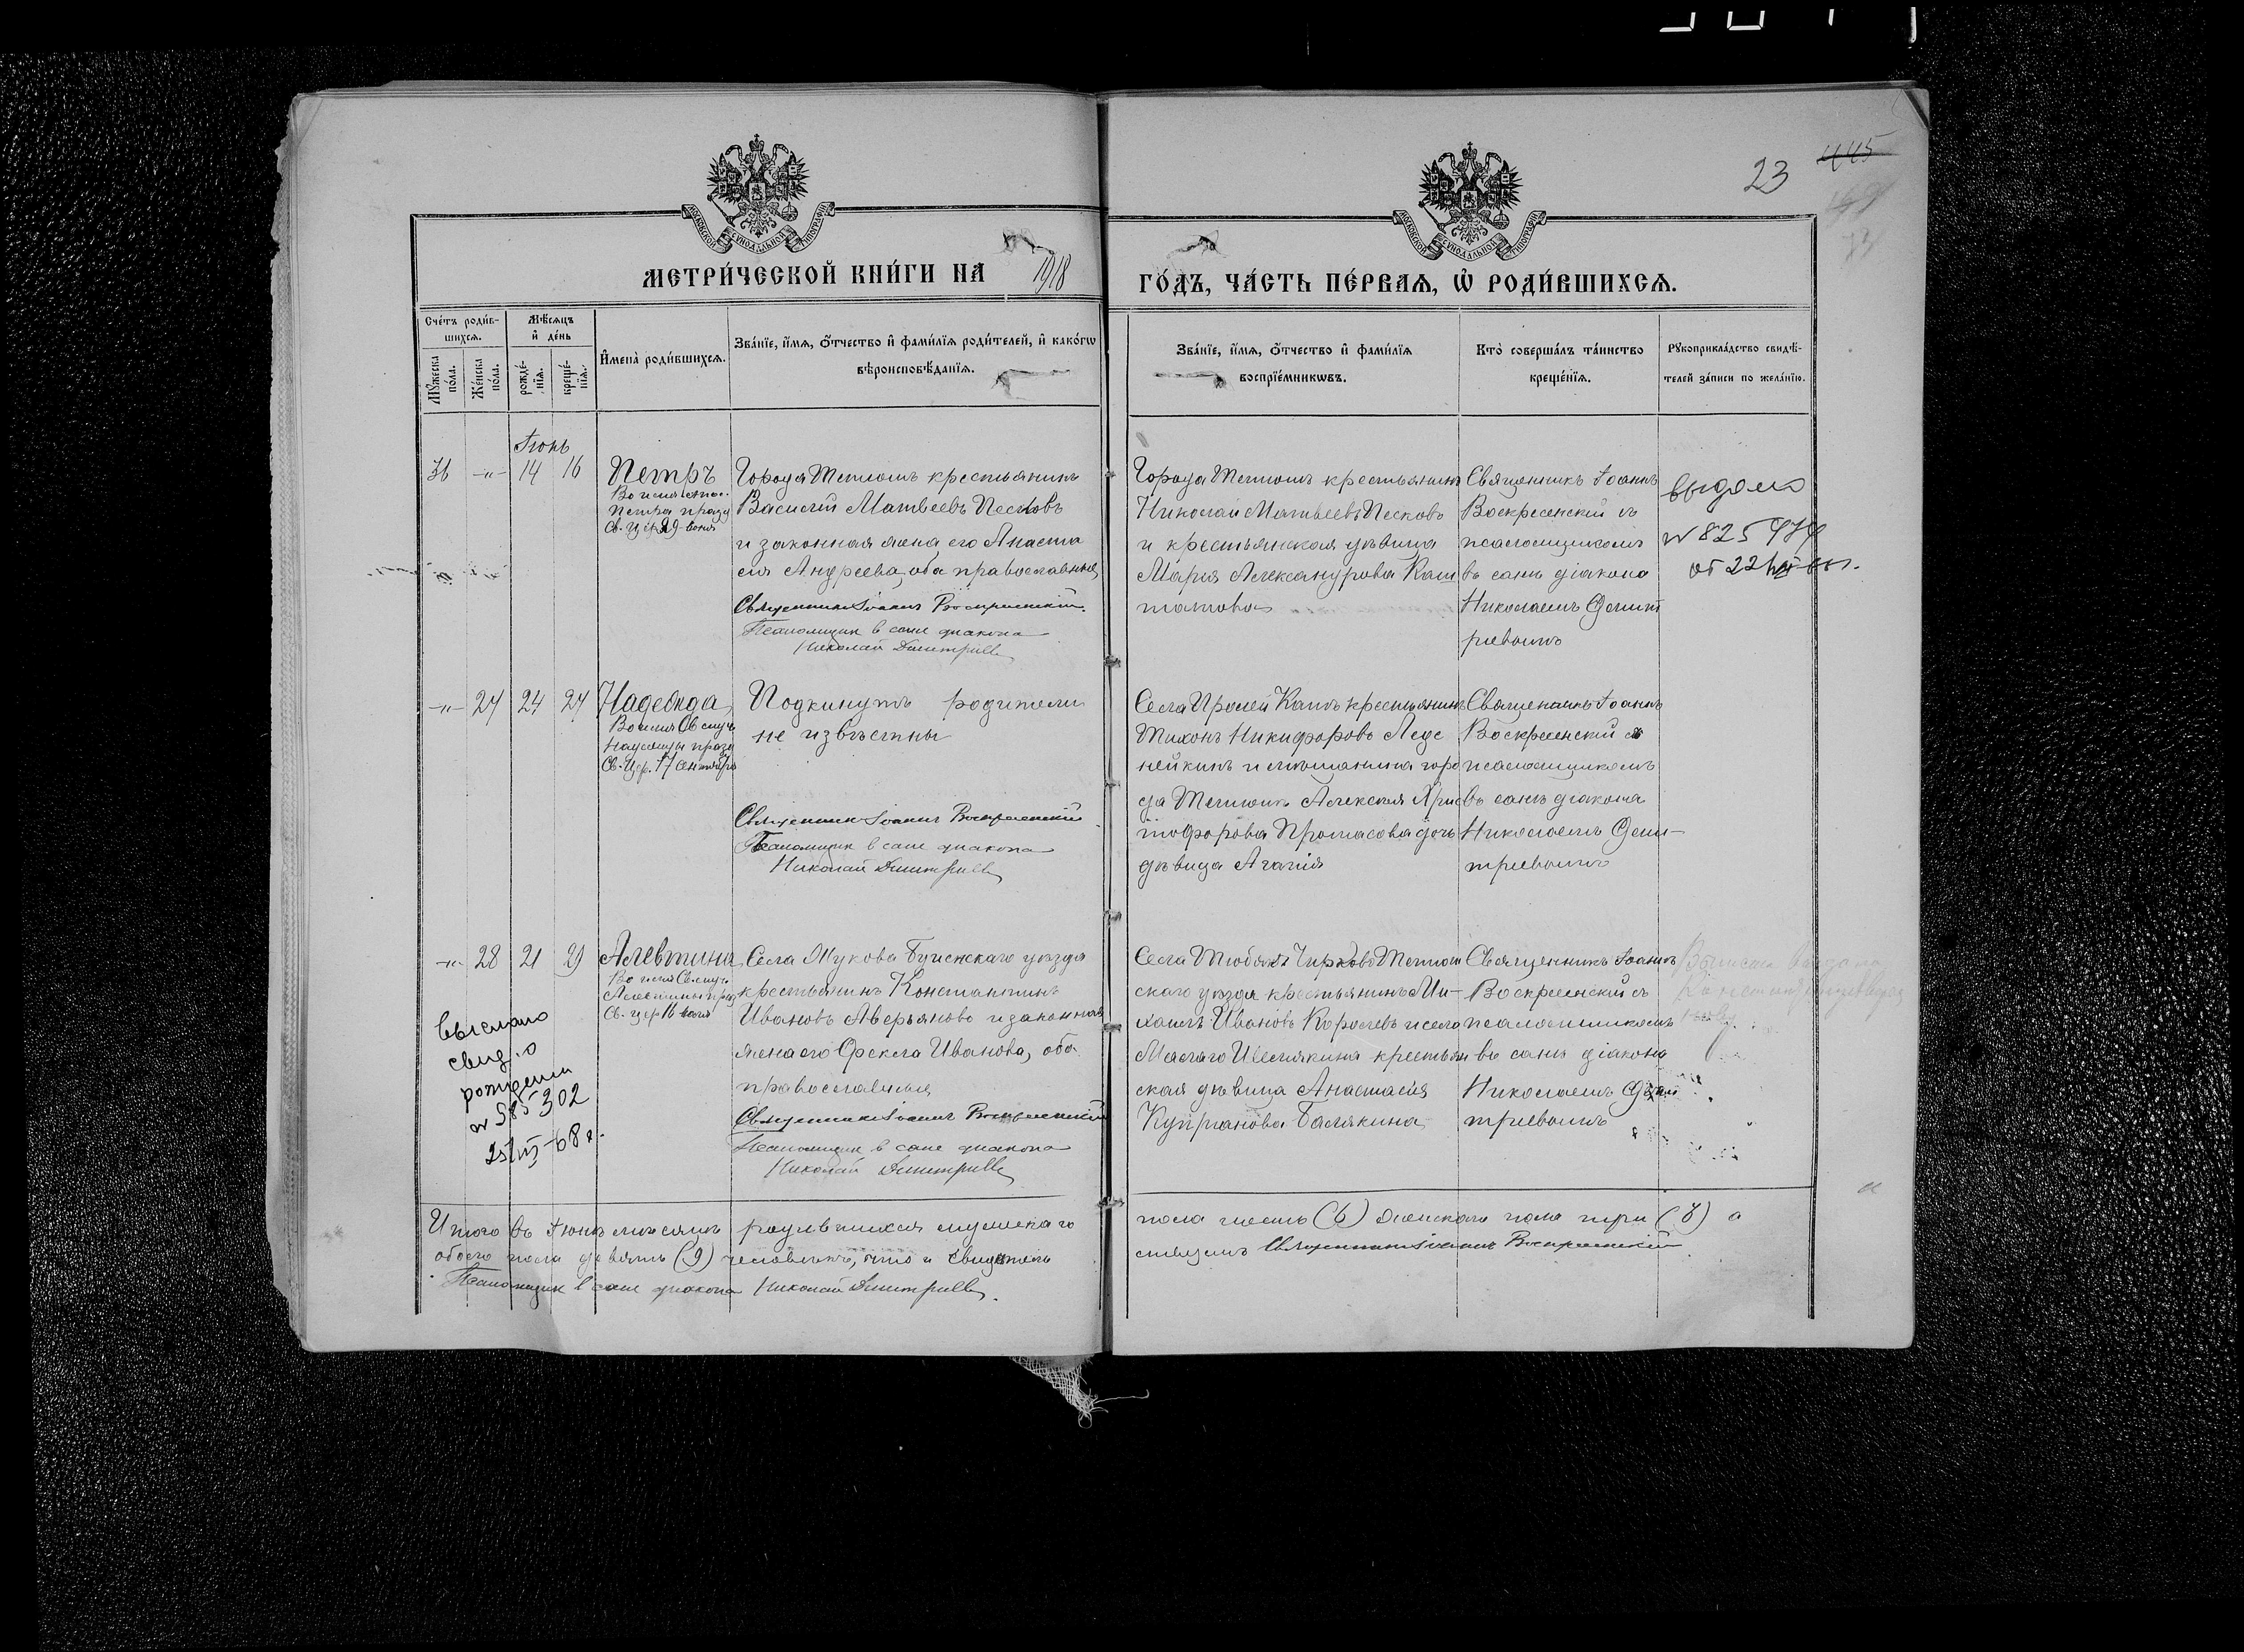 23
445
МОСКОВСКОЙ СѴНОДАЛЬНОЙ ТИПОГРАФІИ
МОСКОВСКОЙ СѴНОДАЛЬНОЙ ТИПОГРАФІИ
МЕТРИ́ЧЕСКОЙ КНИ́ГИ НА 1918 ГО́ДЪ, ЧА́СТЬ ПЕ́РВАѦ, Ѡ҆ РОДИ́ВШИХСѦ.
Сче́тъ роди́в-
шихсѧ.
Мꙋ́жеска по́ла.
Же́нска по́ла.
Мѣ́сѧцъ
и҆ де́нь
рожде́-
нїѧ.
креще́-
нїѧ.
И҆мена̀ роди́вшихсѧ.
Зва́нїе, и҆́мѧ, ѻ҆́тчество и҆ фами́лїѧ роди́телей, и҆ како́гѡ
вѣроисповѣ́данїѧ.
Зва́нїе, и҆́мѧ, ѻ҆́тчество и҆ фами́лїѧ
воспрїе́мникѡвъ.
Кто̀ соверша́лъ та́инство
креще́нїѧ.
Рꙋкоприкла́дство свидѣ́-
телей за́писи по жела́нїю.
Іюнь
36 -"- 14 16
Петръ
Во имя апос.
Петра празд
Св. Цер 29 іюня
Города Тетюшъ крестьянинъ
Василій Матвеевъ Песковъ
и законная жена его Анаста
сія Андреева, оба православные
Священникъ Іоаннъ Воскресенскій.
Псаломщик в сане диакона
Николай Димитриев
Города Тетюшъ крестьянинъ
Николай Матвеевъ Песковъ
и крестьянская дѣвица
Марія Александрова Каш
татова
Священникъ Іоаннъ
Воскресенскій съ
псаломщикомъ
въ санѣ діакона
Николаемъ Димит
ріевымъ
выдано
№ 825
от 22
-"- 27 24 27
Надежда
Во имя Св муч
Надежды празд
Св. Цер. 17 сентября
Подкинутъ родители
не извѣстны
Священникъ Іоаннъ Воскресенскій
Псаломщик в сане диакона
Николай Димитриев
Села Пролей Каши крестьянинъ
Тихонъ Никифоровъ Леде
нейкинъ и мѣщанина горо
да Тетюшъ Алексея Хрис
тофорова Протасова дочь
дѣвица Агапія
Священникъ Іоаннъ
Воскресенскій съ
псаломщикомъ
въ санѣ діакона
Николаемъ Дими-
тріевымъ
-"- 28 21 29
Алевтина
Во имя Св муч.
Алевтины празд
Св. цер 16 іюля
Села Жукова Буинскаго уѣзда
крестьянинъ Константинъ
Ивановъ Аверьяновъ и законная
жена его Фекла Иванова, оба
православные
Священникъ Іоаннъ Воскресенскій
Псаломщик в сане диакона
Николай Димитриев
выслано
свид. о
рождении
№ 585302
25/VII-68 г.
Села Тюбяка Чирково Тетюш
скаго уѣзда крестьянинъ Ми-
хаилъ Ивановъ Королевъ и села
Малаго Шемякина крестьян
ская дѣвица Анастасія
Купріанова Балякина
Священникъ Іоаннъ
Воскресенскій съ
псаломщикомъ
въ санѣ діакона
Николаемъ Дими
тріевымъ
Итого въ Іюнѣ мѣсяцѣ родившихся мужскаго пола шесть (6) женскаго пола три (3) а
обоего пола девять (9) человѣкъ, что и свидѣтель
ствуемъ Священникъ Іоаннъ Воскресенскій.
Псаломщик в сане диакона Николай Димитриев.